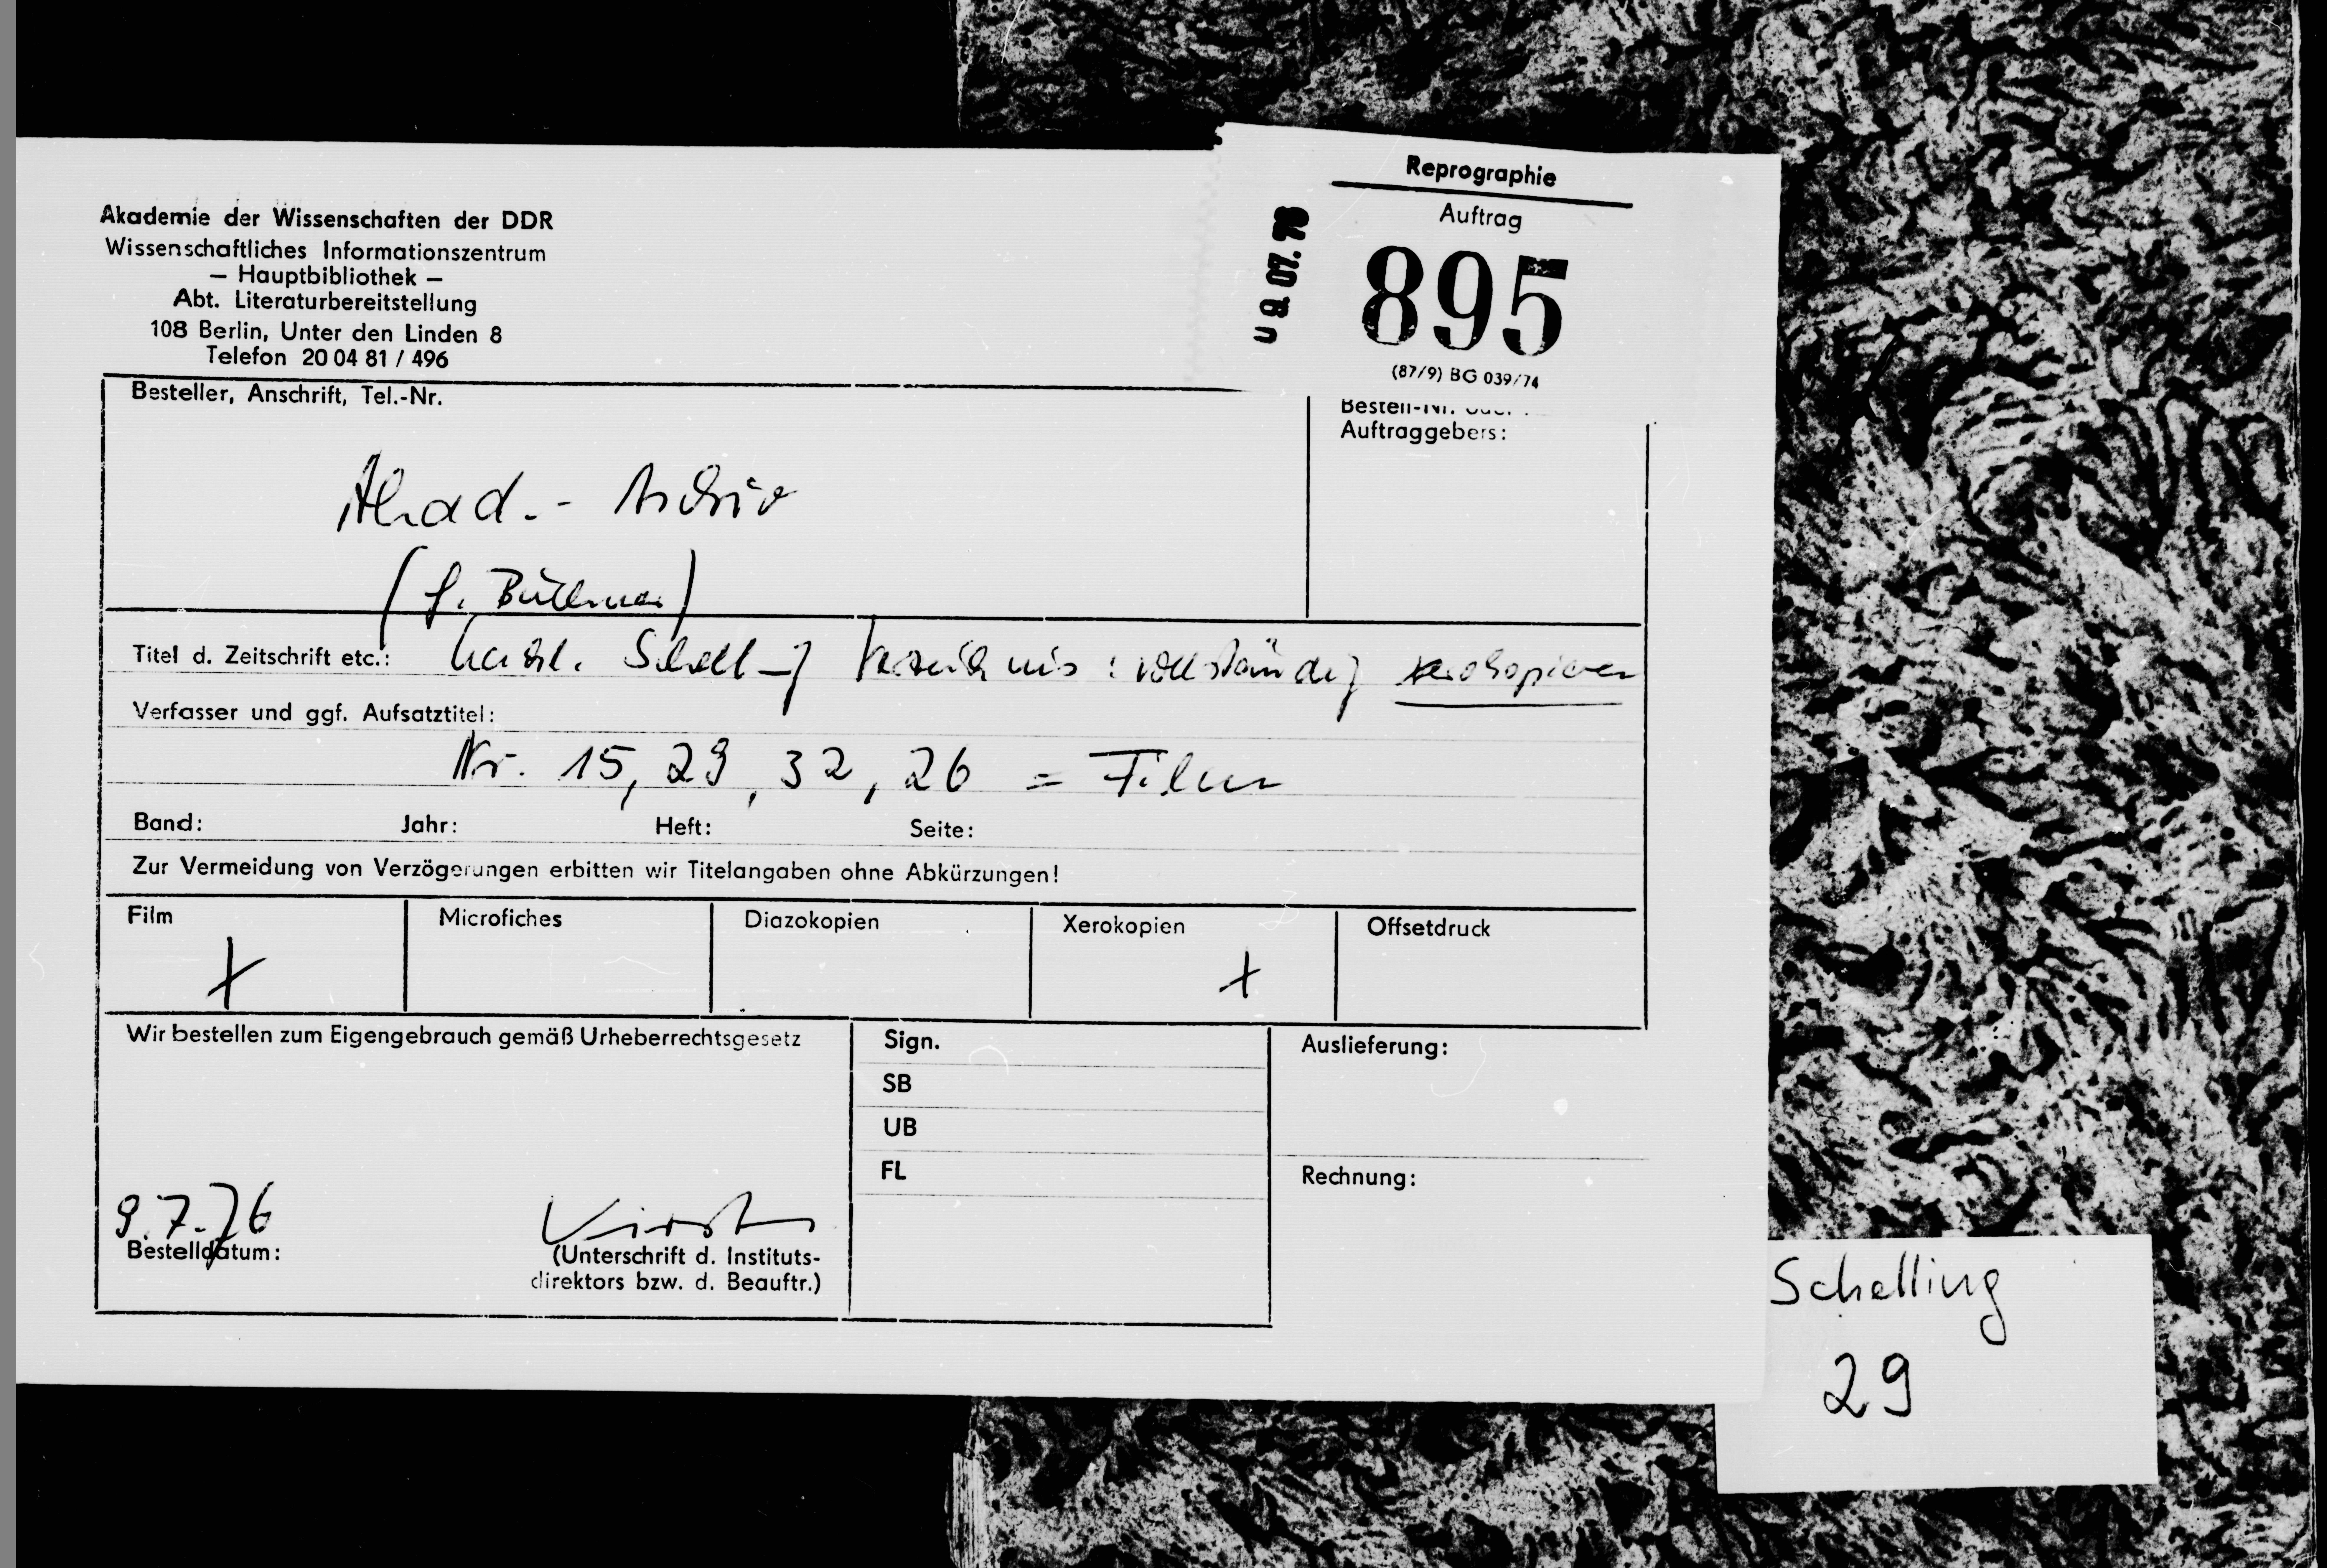 Akademie der Wissenschaften der DDR
Wissenschaftliches Informationszentrum
– Hauptbibliothek –
Abt. Literaturbereitstellung
108 Berlin, Unter den Linden 8
Telefon 20 04 81 / 496
Reprographie
Auftrag
895
(87/9) BG 039/74
09.07.76
Besteller, Anschrift, Tel.-Nr.
Akad.- Archiv
Bestell-Nr.
Auftraggebers:
Titel d. Zeitschrift etc.: Schell-g Verzeichnis: vollständig xerokopieren
Verfasser und ggf. Aufsatztitel:
Nr. 15, 29, 32, 26 = Film
Band: Jahr: Heft: Seite:
Zur Vermeidung von Verzögerungen erbitten wir Titelangaben ohne Abkürzungen!
Film Microfiches Diazokopien Xerokopien Offsetdruck
+ +
Wir bestellen zum Eigengebrauch gemäß Urheberrechtsgesetz
Sign.
SB
UB
FL
Auslieferung:
Rechnung:
9.7.76
Bestelldatum:
(Unterschrift d. Instituts-
direktors bzw. d. Beauftr.)
Schelling
29